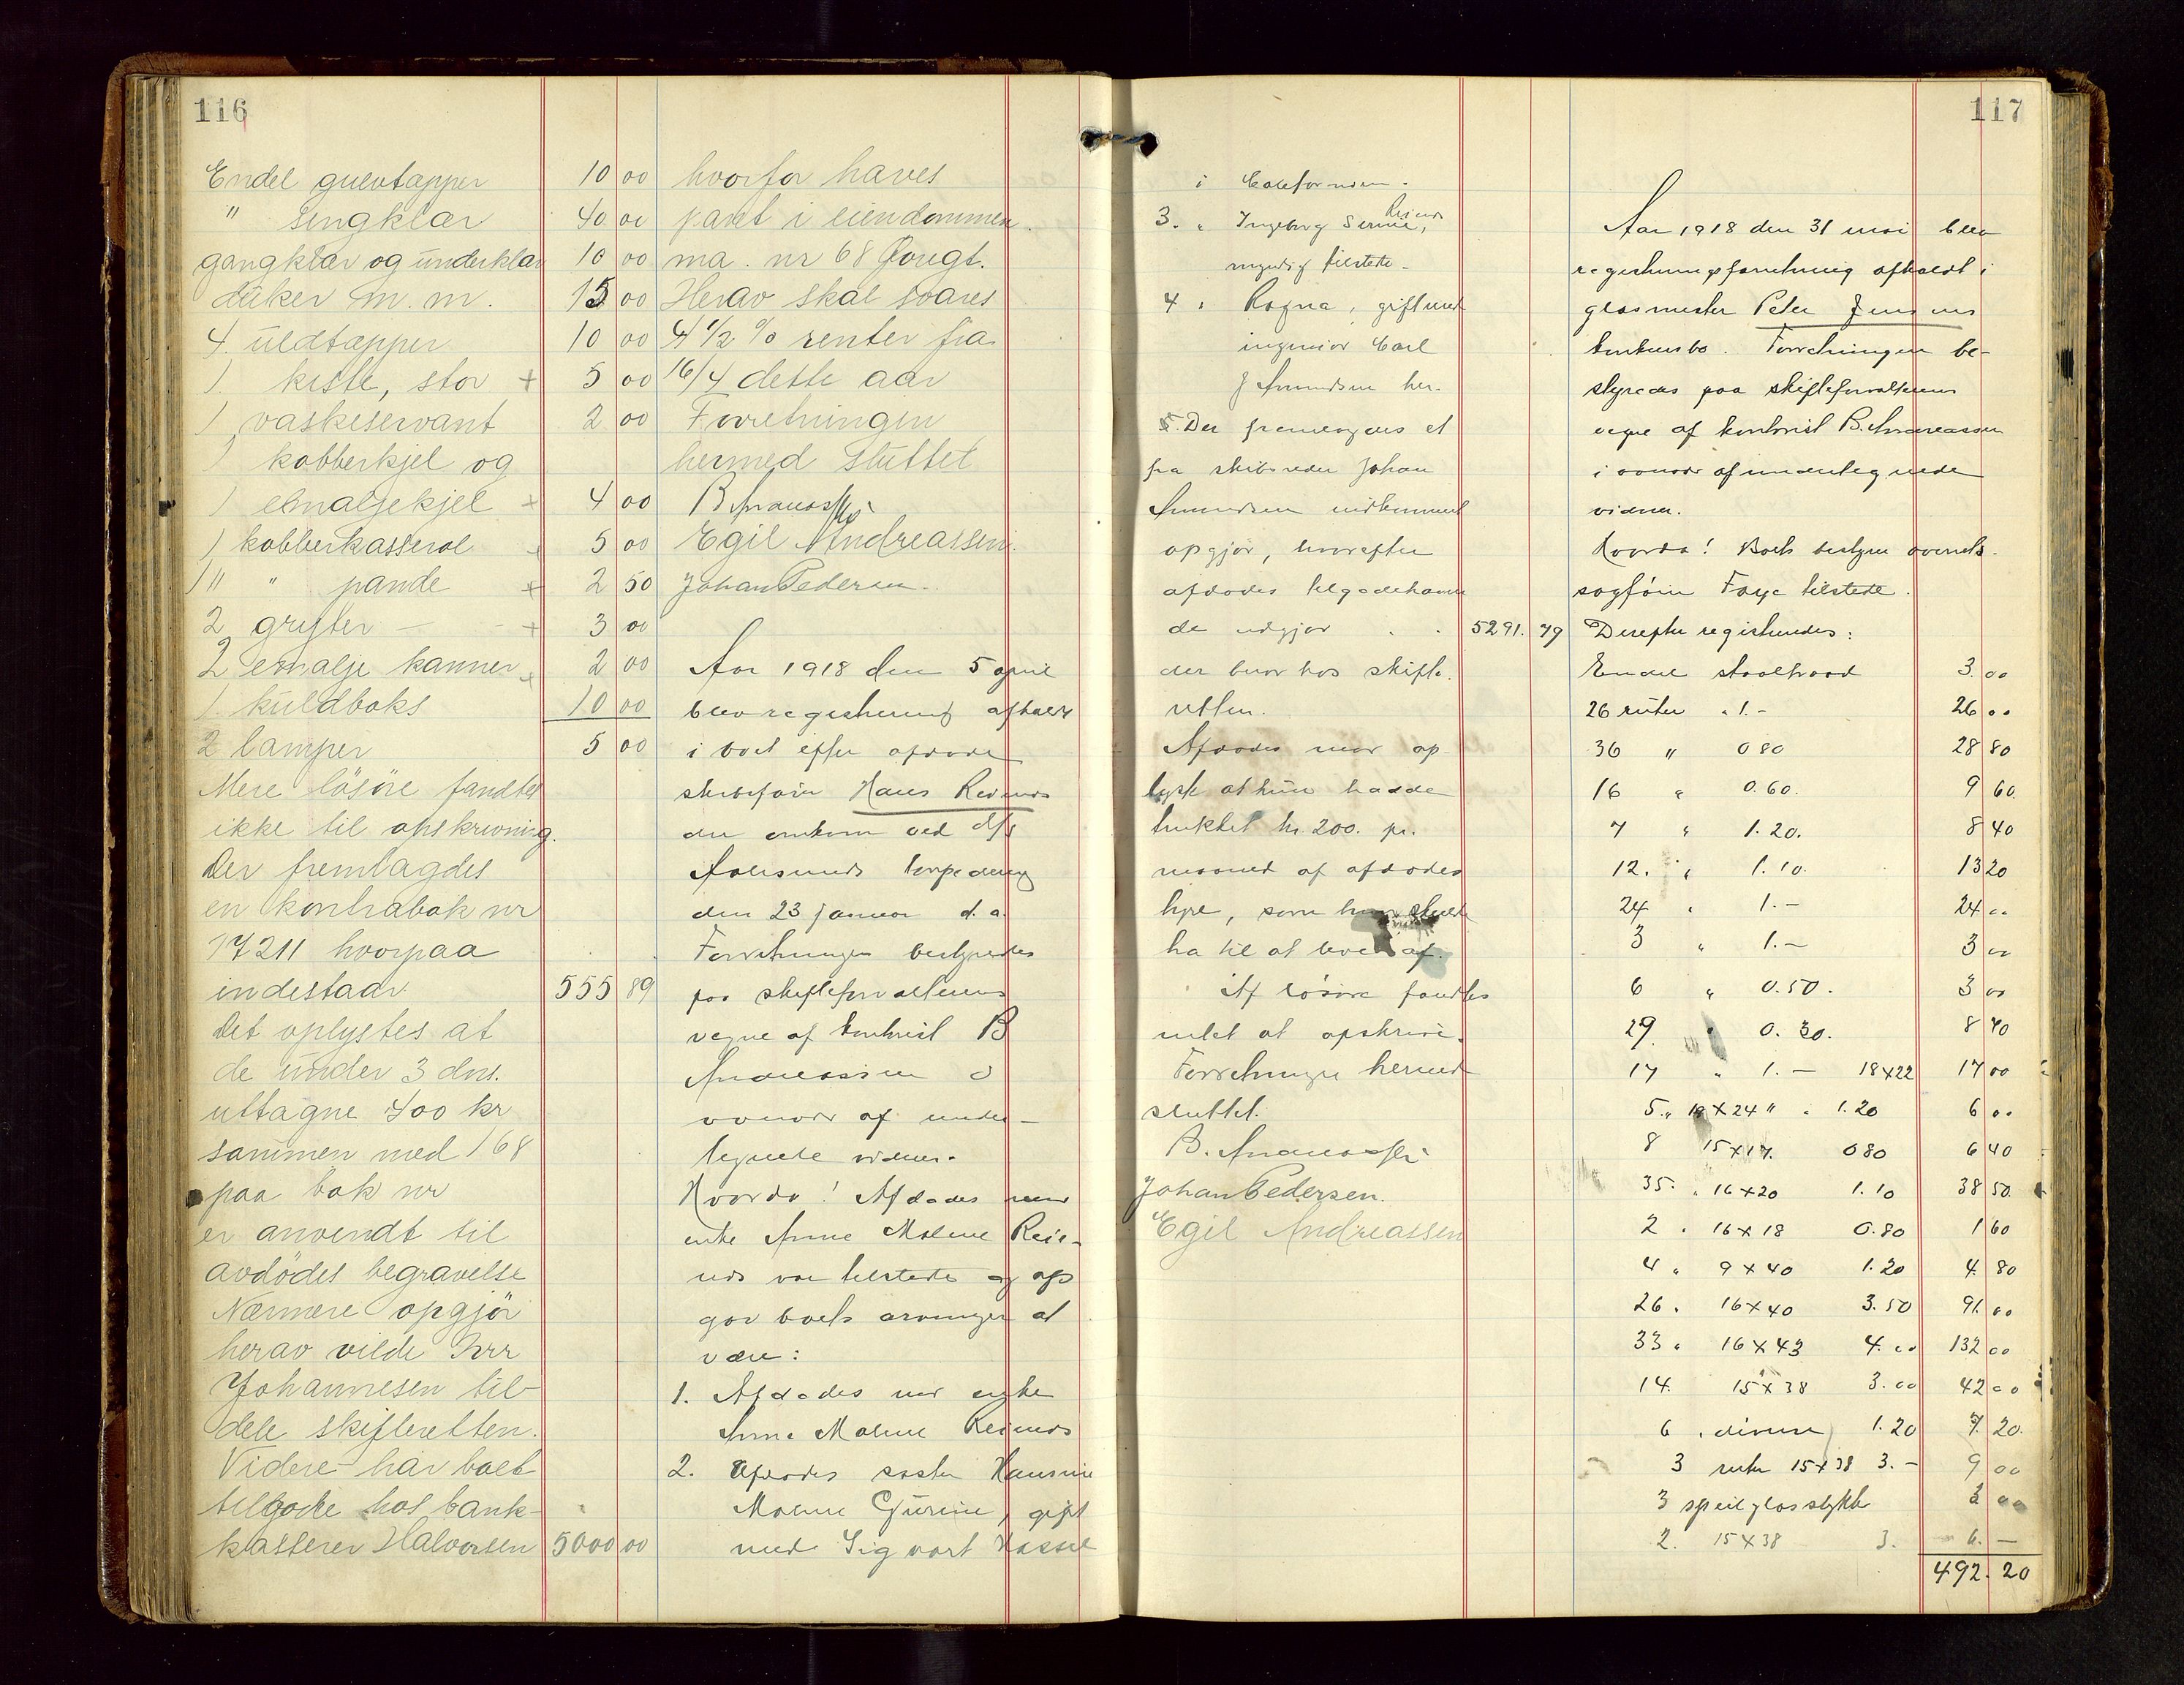 116
Endel gulvtæpper 10 00
" sengklær 40 00
gangklær og underklær 10 00
duker m.m. 15 00
4 uldtæpper 10 00
1 kiste, stor + 5 00
1 vaskeservant 2 00
1 kobberkjel og
1 emaljekjel + 4 00
1 kobberkasserol + 5 00
1 " " pande + 2 50
2 gryter - - + 3 00
2 emalje kanner + 2 00
1 kuldboks 10 00
2 lamper 5 00
Mere løsøre fandtes
ikke til opskrivning.
Der fremlagdes
en kontrabok nr
17211 hvorpaa
indestaar 555 89
Det oplystes at
de under 3 dns.
uttagne 400 kr
sammen med 168
paa bok nr
er anvendt til
avdødes begravelse
Nærmere opgjør
herav vilde
Johannesen til-
dele skifteretten.
Videre har boet
tilgode hos bank-
kasserer Halvorsen 5000 00
hvorfor haves
pant i eiendommen.
ma. nr 68
Herav skal svares
4 1/2 % renter fra
16/4 dette aar
Forretningen
hermed sluttet
B. Andreassen
Egil Andreassen
Johan Pedersen.
Aar 1918 den 5 april
blev registrering afholdt
i boet efter afdøde
skibsfører Hans Reiners
der omkom ved d/s
Aalesunds torpedering
den 23 januar d. a.
Forretningen bestyredes
paa skifteforvalterens
vegne af kontorist B
Andreassen i
overvær af under-
tegnede vidner.
Hvorda! Afdødes mor
enke Anne Malene Rei-
ners var tilstede og op
gav boets arvinger at
være:
1. Afdødes mor enke
Anne Malene Reiners
2. Afdødes søster Hansine
Malene Gurine, gift
med Sigvart Hassel
117
i Californien.
3. " Ingeborg Serine, Reiners
myndig tilstede.
4 " Ragna, gift med
ingeniør Carl
J Amundsen her.
5. Der fremlagdes et
fra skibsreder Johan
Amundsen indkommet
opgjør, hvorefter
afdødes tilgodehaven
de udgjør . . 5291. 79
der beror hos skifte-
retten.
Afdødes mor op-
lyste at hun hadde
trukket kr. 200. pr.
maaned af afdødes
hyre, som hun skulde
ha til at leve af.
Af løsøre fandtes
intet at opskrive.
Forretningen hermed
sluttet.
B. Andreassen
Johan Pedersen.
Egil Andreassen
Aar 1918 den 31 mai blev
registreringsforretning afholdt i
glasmester Peter Jensens
konkursbo. Forretningen be-
styredes paa skifteforvalterens
vegne af kontorist B. Andreassen
i overvær af undertegnede
vidner.
Hvorda! Boets bestyrer overrets-
sagfører Faye tilstede.
Derefter registreredes:
Endel staaltraad 3. 00
26 ruter " 1.- 26 00
36 " 0 80 28 80
16 " 0.60. 9 60
7 " 1.20. 8 40
12. " 1.10. 13 20
24 " 1.- 24 00
3 " 1.- 3 00
6 " 0.50. 3 00
29 " 0.30. 8 70
17 " 1.- 18x22 17 00
5 " 18x24 " " 1.20 6 00
8 15x17. 0 80 6 40
35. " 16x20 1.10 38 50
2 " 16x18 0.80 1 60
4 " 9x40 1.20 4 80
26 " 16x40 3.50 91. 00
33 " 16x43 4.00 132 00
14. 15x38 3.00 42 00
6 " diverse 1.20 7. 20.
3 ruter 15x38 3.- 9 00
3 speilglasstykker 00
2. 15x38 3. 6. -
492. 20